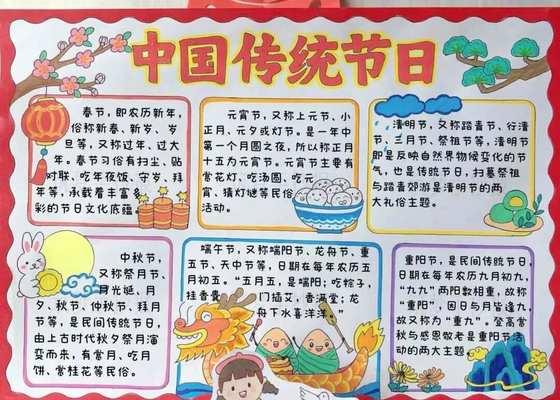 中国传统节日
春节，即农历新年，
俗称新春、新岁、岁
旦等，又称过年、过大
年。春节习俗有扫尘、贴
对联、吃年夜饭、守岁、拜
年等，承载着丰富多
彩的节日文化底蕴。
元宵节，又称上元节、小
正月、元夕或灯节。是一年中
第一个月圆之夜，所以称正月
十五为元宵节。元宵节主要有
赏花灯、吃汤圆、吃元
宵、猜灯谜等民俗
活动。
清明节，又称踏青节、行清
节、三月节、祭祖节等，清明节
即是反映自然界物候变化的节
气，也是传统节日，扫墓祭祖
与踏青郊游是清明节的两
大礼俗主题。
中秋节，
又称祭月节、
月光诞、月
夕、秋节、仲秋节、拜月
节等，是民间传统节日，
由上古时代秋夕祭月演
变而来，有赏月、吃月
饼、赏桂花等民俗。
端午节，又称端阳节、龙舟节、重
五节、天中节等，日期在每年农历五
月初五。“五月五，是端阳；吃粽子，
挂香袋；门插艾，香满堂；龙
舟下水喜洋洋。”
重阳节，是民间传统节日，
日期在每年农历九月初九，
“九九”两阳数相重，故称
“重阳”，因日与月皆逢九，
故又称为“重九”。登高赏
秋与感恩敬老是重阳节活
动的两大主题。